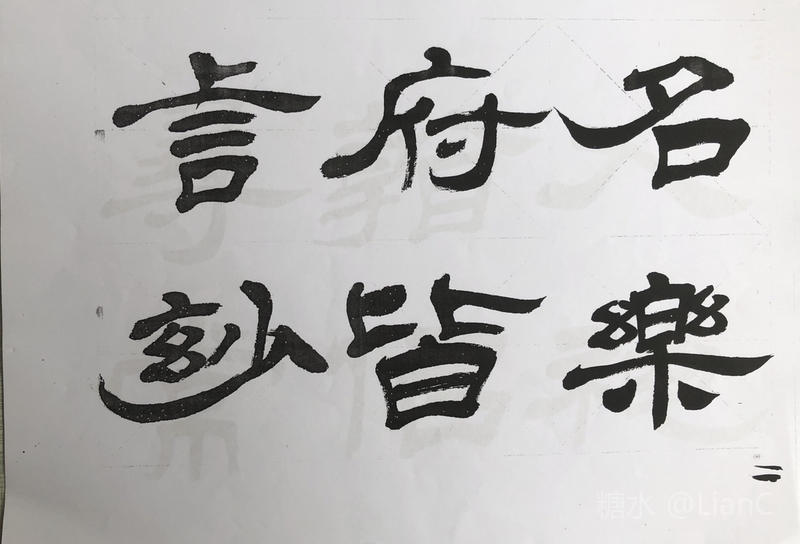 名樂
府皆
言玅
二
糖水 @LianC